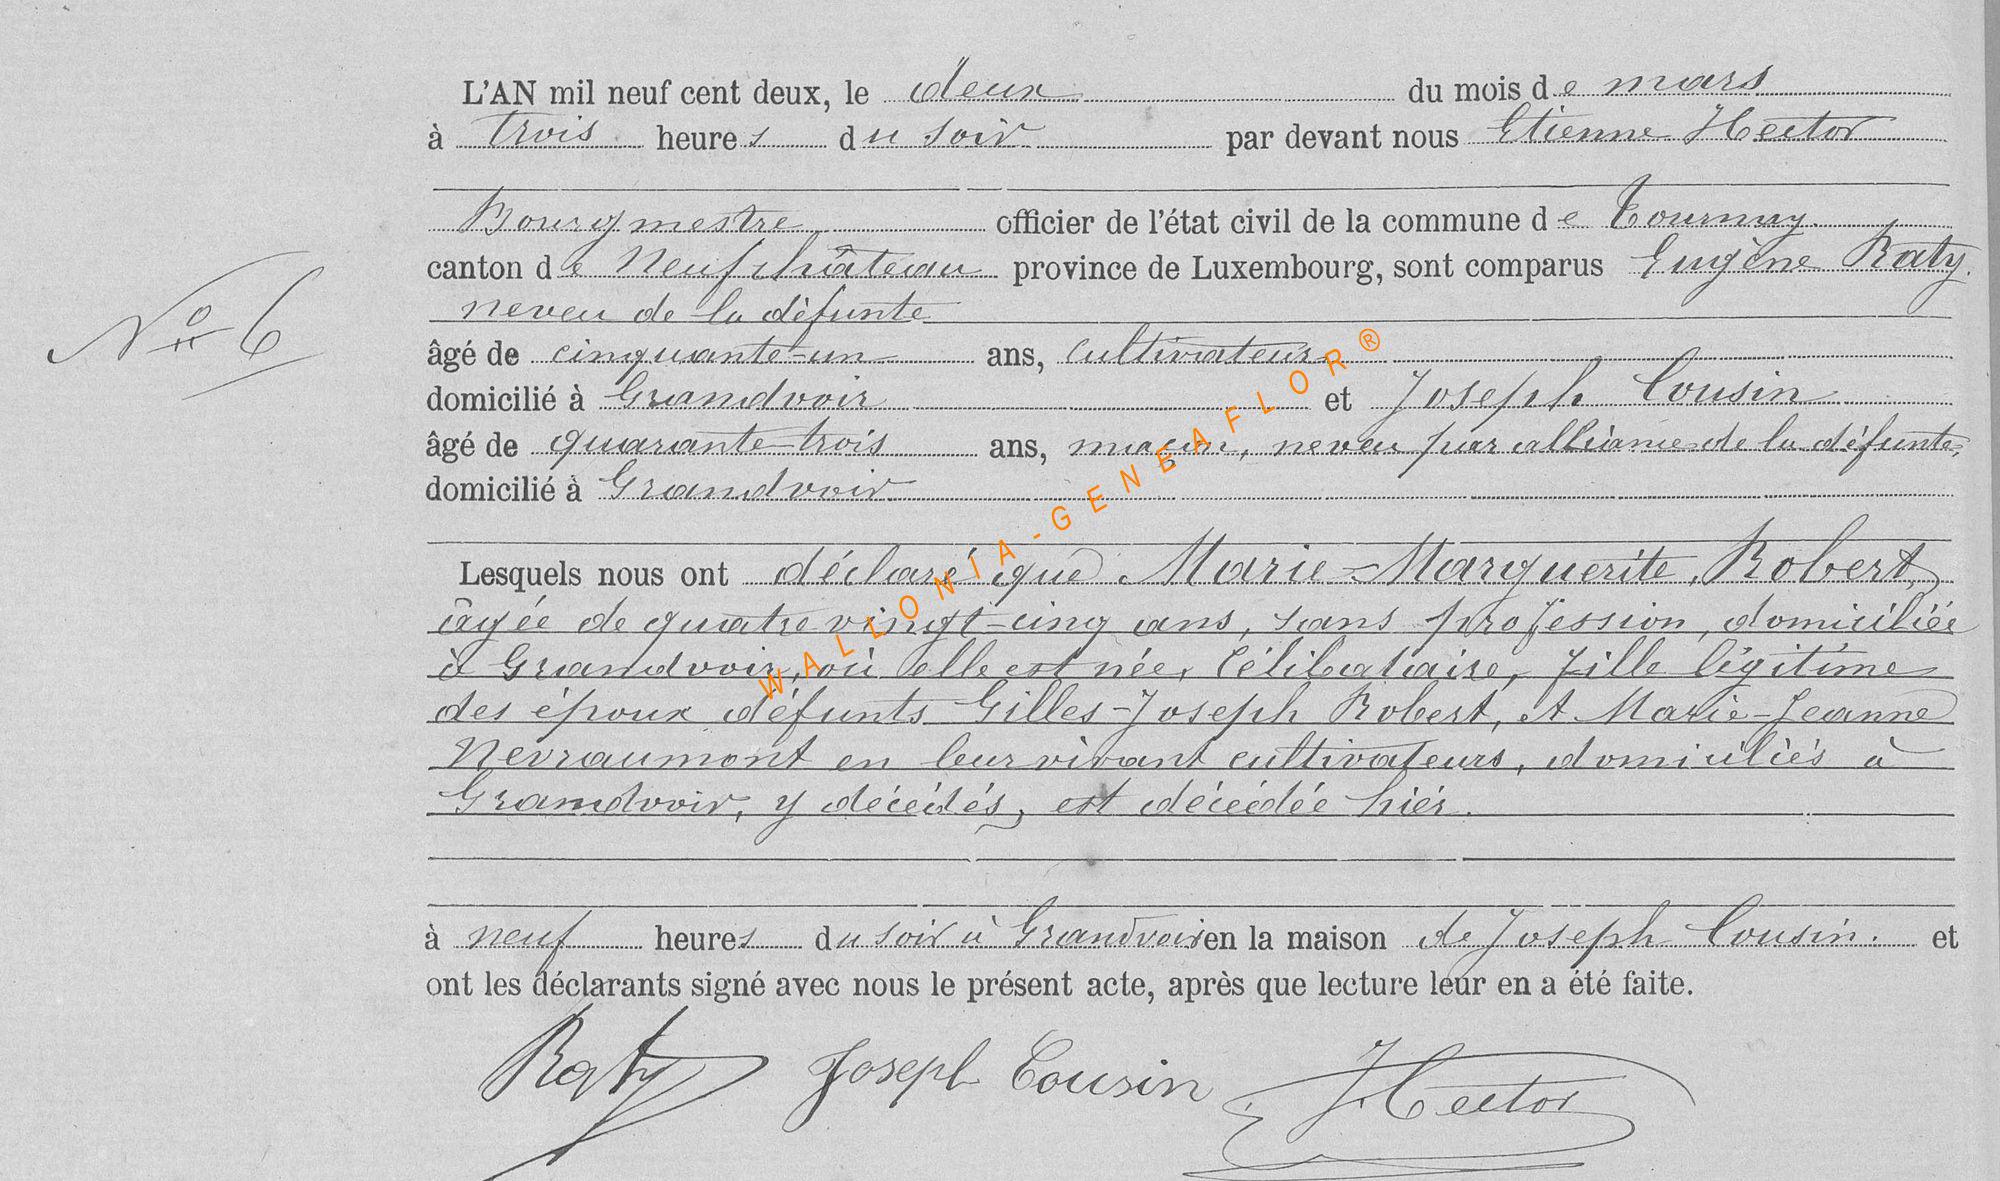 L'AN mil neuf cent deux, le deux du mois de mars
à trois heures du soir par devant nous Etienne Hector
Bourgmestre officier de l'état civil de la commune de Tournay.
canton de Neufchâteau province de Luxembourg, sont comparus Eugène Raty.
neveu de la défunte
N° 6
âgé de cinquante-un ans, cultivateur
domicilié à Grandvoir et Joseph Cousin
âgé de quarante-trois ans, maçon, neveu par alliance de la défunte,
domicilié à Grandvoir
Lesquels nous ont déclaré que Marie-Marguerite, Robert,
âgée de quatre vingt-cinq ans, sans profession, domiciliée
à Grandvoir, où elle est née, Célibataire, fille légitime
des époux défunts Gilles-Joseph Robert, et Marie-Jeanne
Nevraumont en leur vivant cultivateurs, domiciliés à
Grandvoir, y décédés, est décédée hier.
à neuf heures du soir à Grandvoir en la maison de Joseph Cousin. et
ont les déclarants signé avec nous le présent acte, après que lecture leur en a été faite.
Raty Joseph Cousin Hector
WALLONIA-GENEAFLOR®